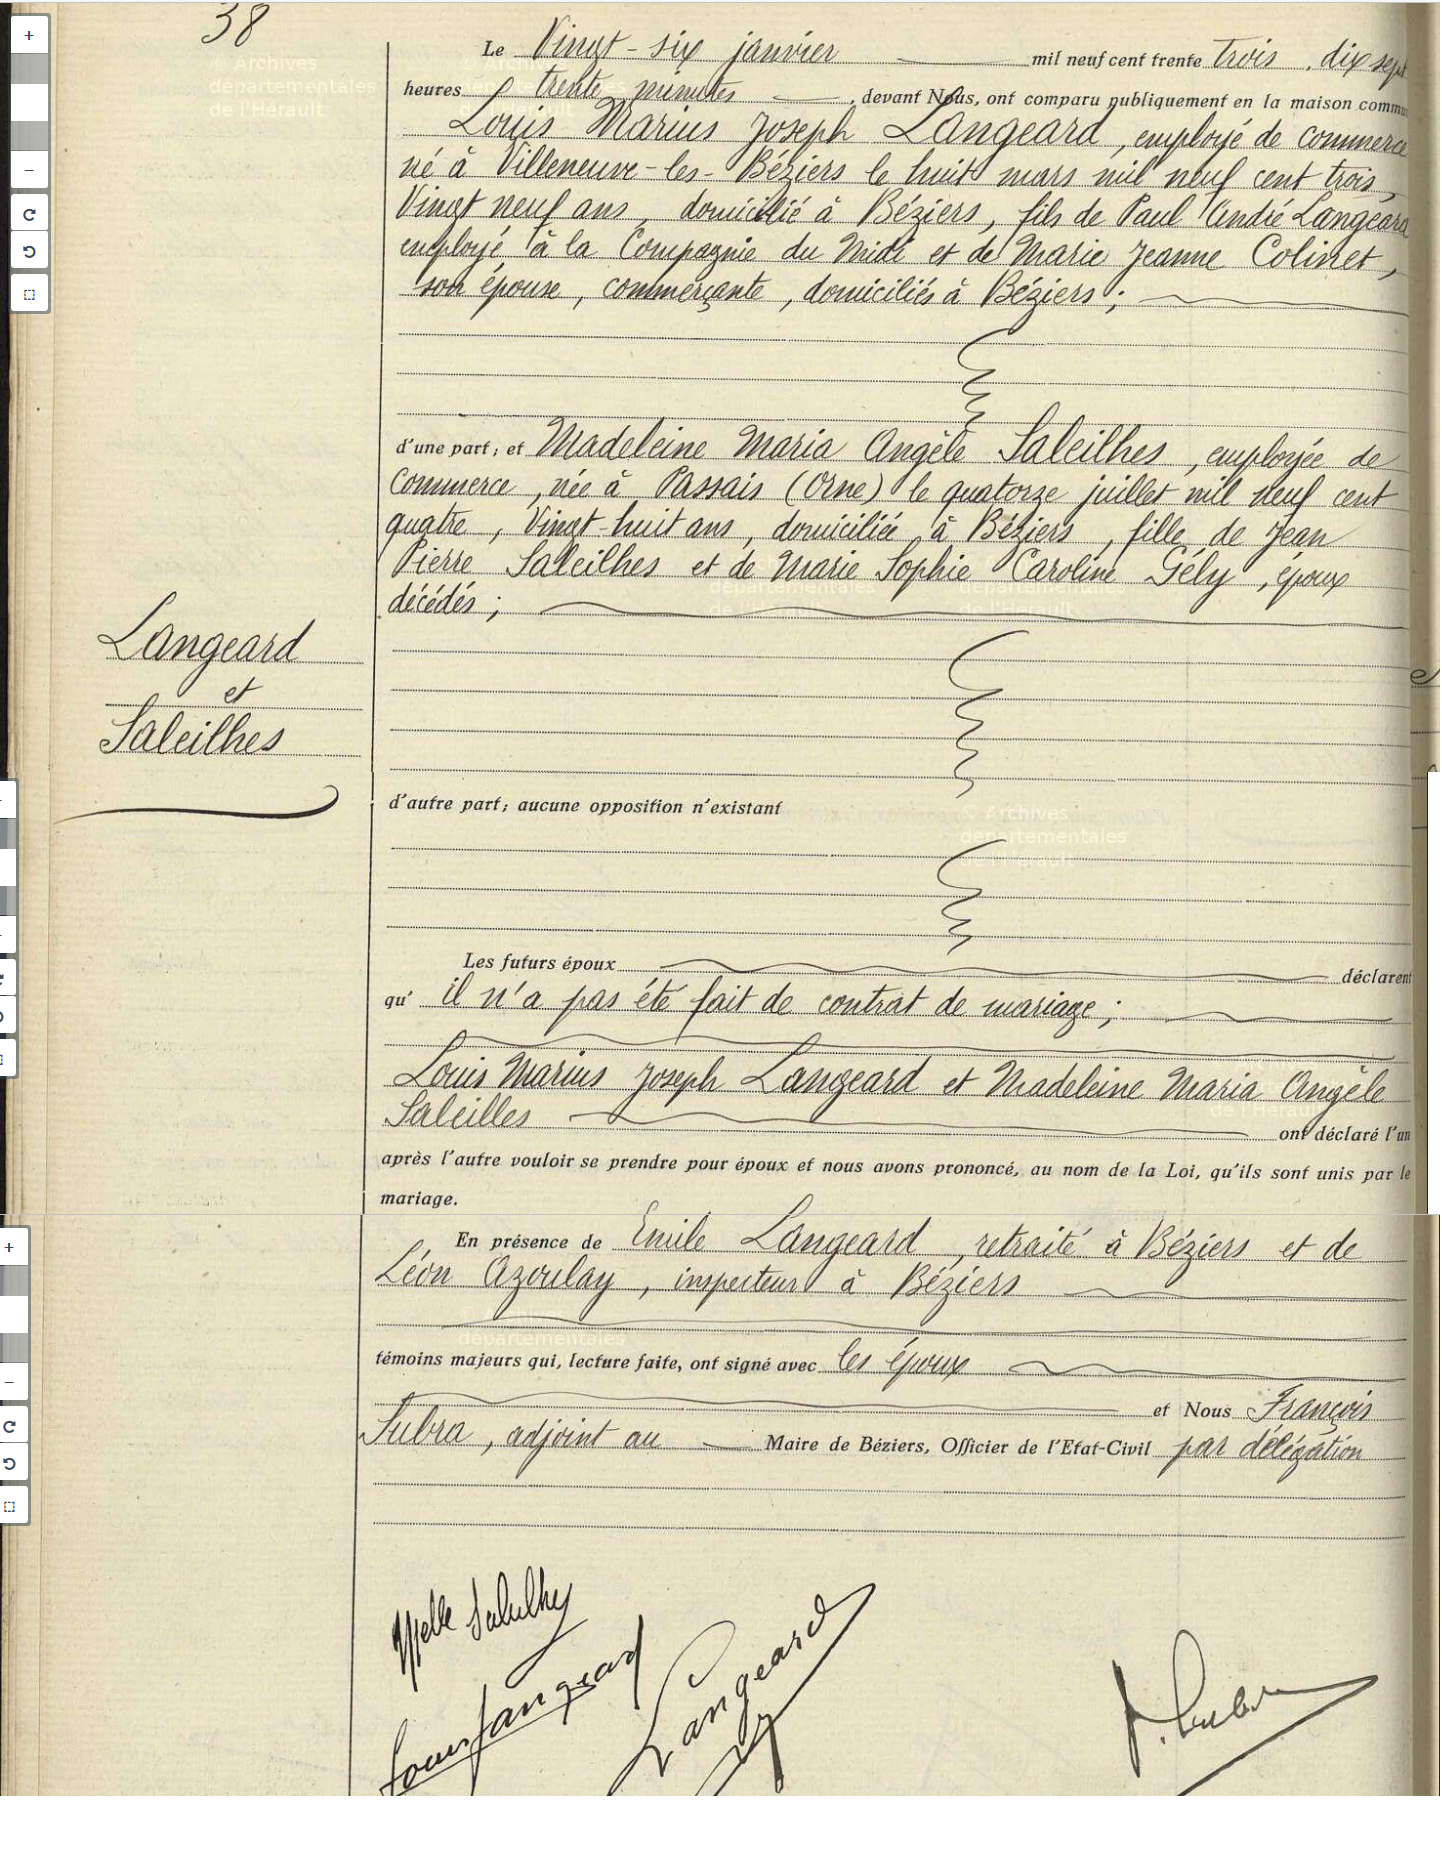 38
Le Vingt-six janvier mil neuf cent trente trois, dix sept
heures trente minutes, devant Nous, ont comparu publiquement en la maison commu
Louis Marius Joseph Langeard, employé de commerce
né à Villeneuve-les-Béziers le huit mars mil neuf cent trois,
Vingt neuf ans, domicilié à Béziers, fils de Paul André Langeard
employé à la Compagnie du Midi et de Marie Jeanne Colinet,
son épouse, commerçante, domiciliés à Béziers;
d'une part; et Madeleine Maria Angèle Saleilhes, employée de
commerce, née à Passais (Orne) le quatorze juillet mil neuf cent
quatre, Vingt-huit ans, domiciliée à Béziers, fille de Jean
Pierre Saleilhes et de Marie Sophie Caroline Gély, époux
décédés;
Langeard
et
Saleilhes
d'autre part; aucune opposition n'existant
Les futurs époux déclarent
qu' il n'a pas été fait de contrat de mariage;
Louis Marius Joseph Langeard et Madeleine Maria Angèle
Saleilles ont déclaré l'un
après l'autre vouloir se prendre pour époux et nous avons prononcé, au nom de la Loi, qu'ils sont unis par le
mariage.
En présence de Emile Langeard, retraité à Béziers et de
Léon Azoulay, inspecteur à Béziers
témoins majeurs qui, lecture faite, ont signé avec les époux
et Nous François
Subra, adjoint au Maire de Béziers, Officier de l'Etat-Civil par délégation
Melle Saleilhes
Louis Langeard
Langeard
© Archives
départementales
de l'Hérault